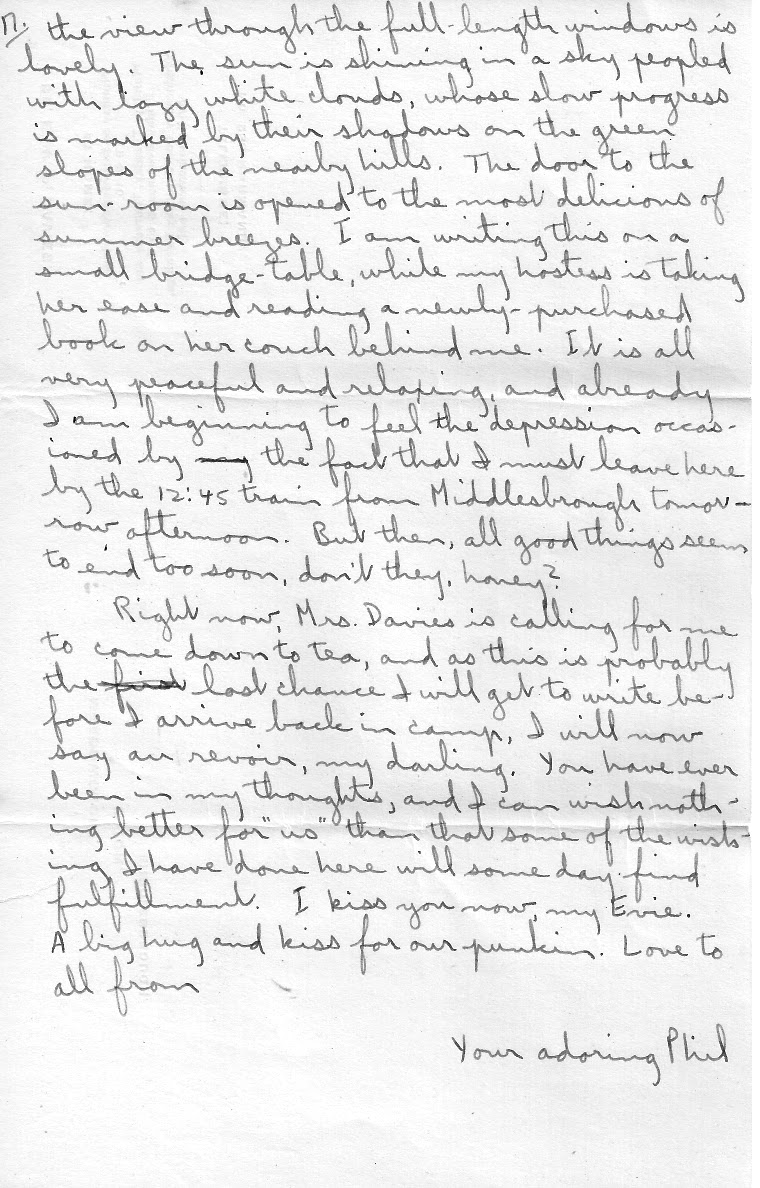 17. the view through the full-length windows is
lovely. The sun is shining in a sky peopled
with lazy white clouds, whose slow progress
is marked by their shadows on the green
slopes of the nearby hills. The door to the
sun-room is opened to the most delicious of
summer breezes. I am writing this on a
small bridge-table, while my hostess is taking
her ease and reading a newly-purchased
book on her couch behind me. It is all
very peaceful and relaxing, and already
I am beginning to feel the depression occas-
ioned by my the fact that I must leave here
by the 12:45 train from Middlesbrough tomor-
row afternoon. But then, all good things seem
to end too soon, don't they, honey?
Right now, Mrs. Davies is calling for me
to come down to tea, and as this is probably
the first last chance I will get to write be-
fore I arrive back in camp, I will now
say au revoir, my darling. You have ever
been in my thoughts, and I can wish noth-
ing better for "us" than that some of the wish-
ing I have done here will some day find
fulfillment. I kiss you now, my Evie.
A big hug and kiss for our punkin. Love to
all from
Your adoring Phil